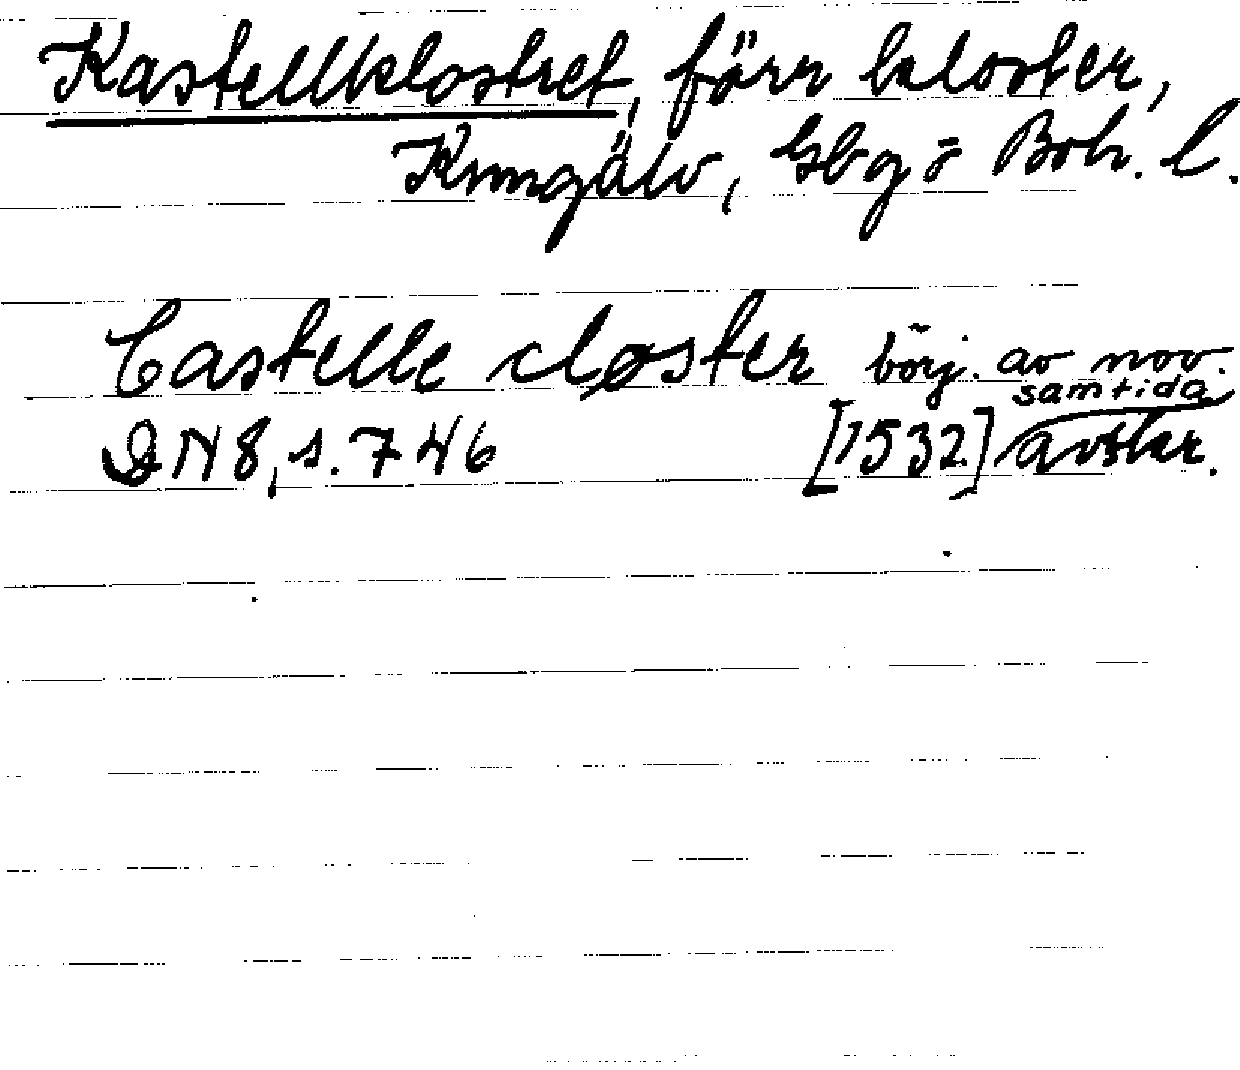 Kastellklostret, förr kloster,
Kungälv, Gbg o Boh. l.
Castelle closter börj. av nov.
DN 8, s. 746 [1532] samtida avskr.